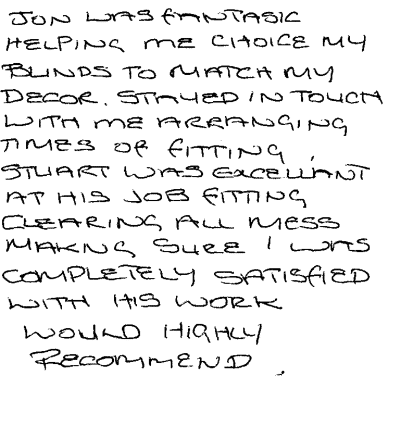 JON WAS FANTASIC
HELPING ME CHOICE MY
BLINDS TO MATCH MY
DECOR. STAYED IN TOUCH
WITH ME ARRANGING
TIMES OF FITTING.
STUART WAS EXCELLANT
AT HIS JOB FITTING
CLEARING ALL MESS
MAKNG SURE I WAS
COMPLETELY SATISFIED
WITH HIS WORK
WOULD HIGHLY
RECOMMEND.